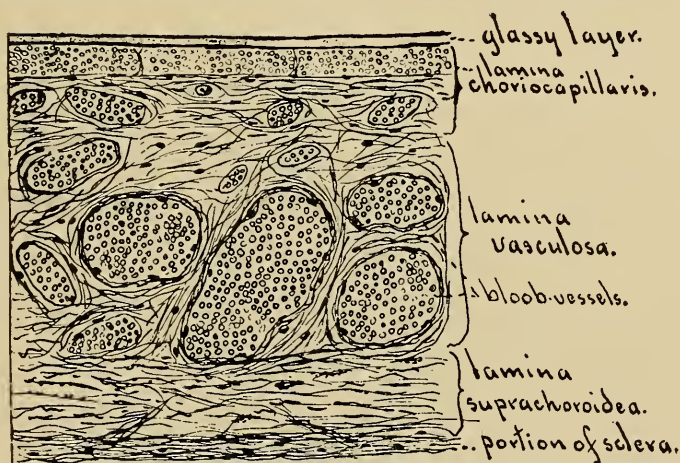 glassy layer.
lamina
choriocapillaris.
lamina
vasculosa.
bloob-vessels.
lamina
suprachoroidea.
portion of sclera.